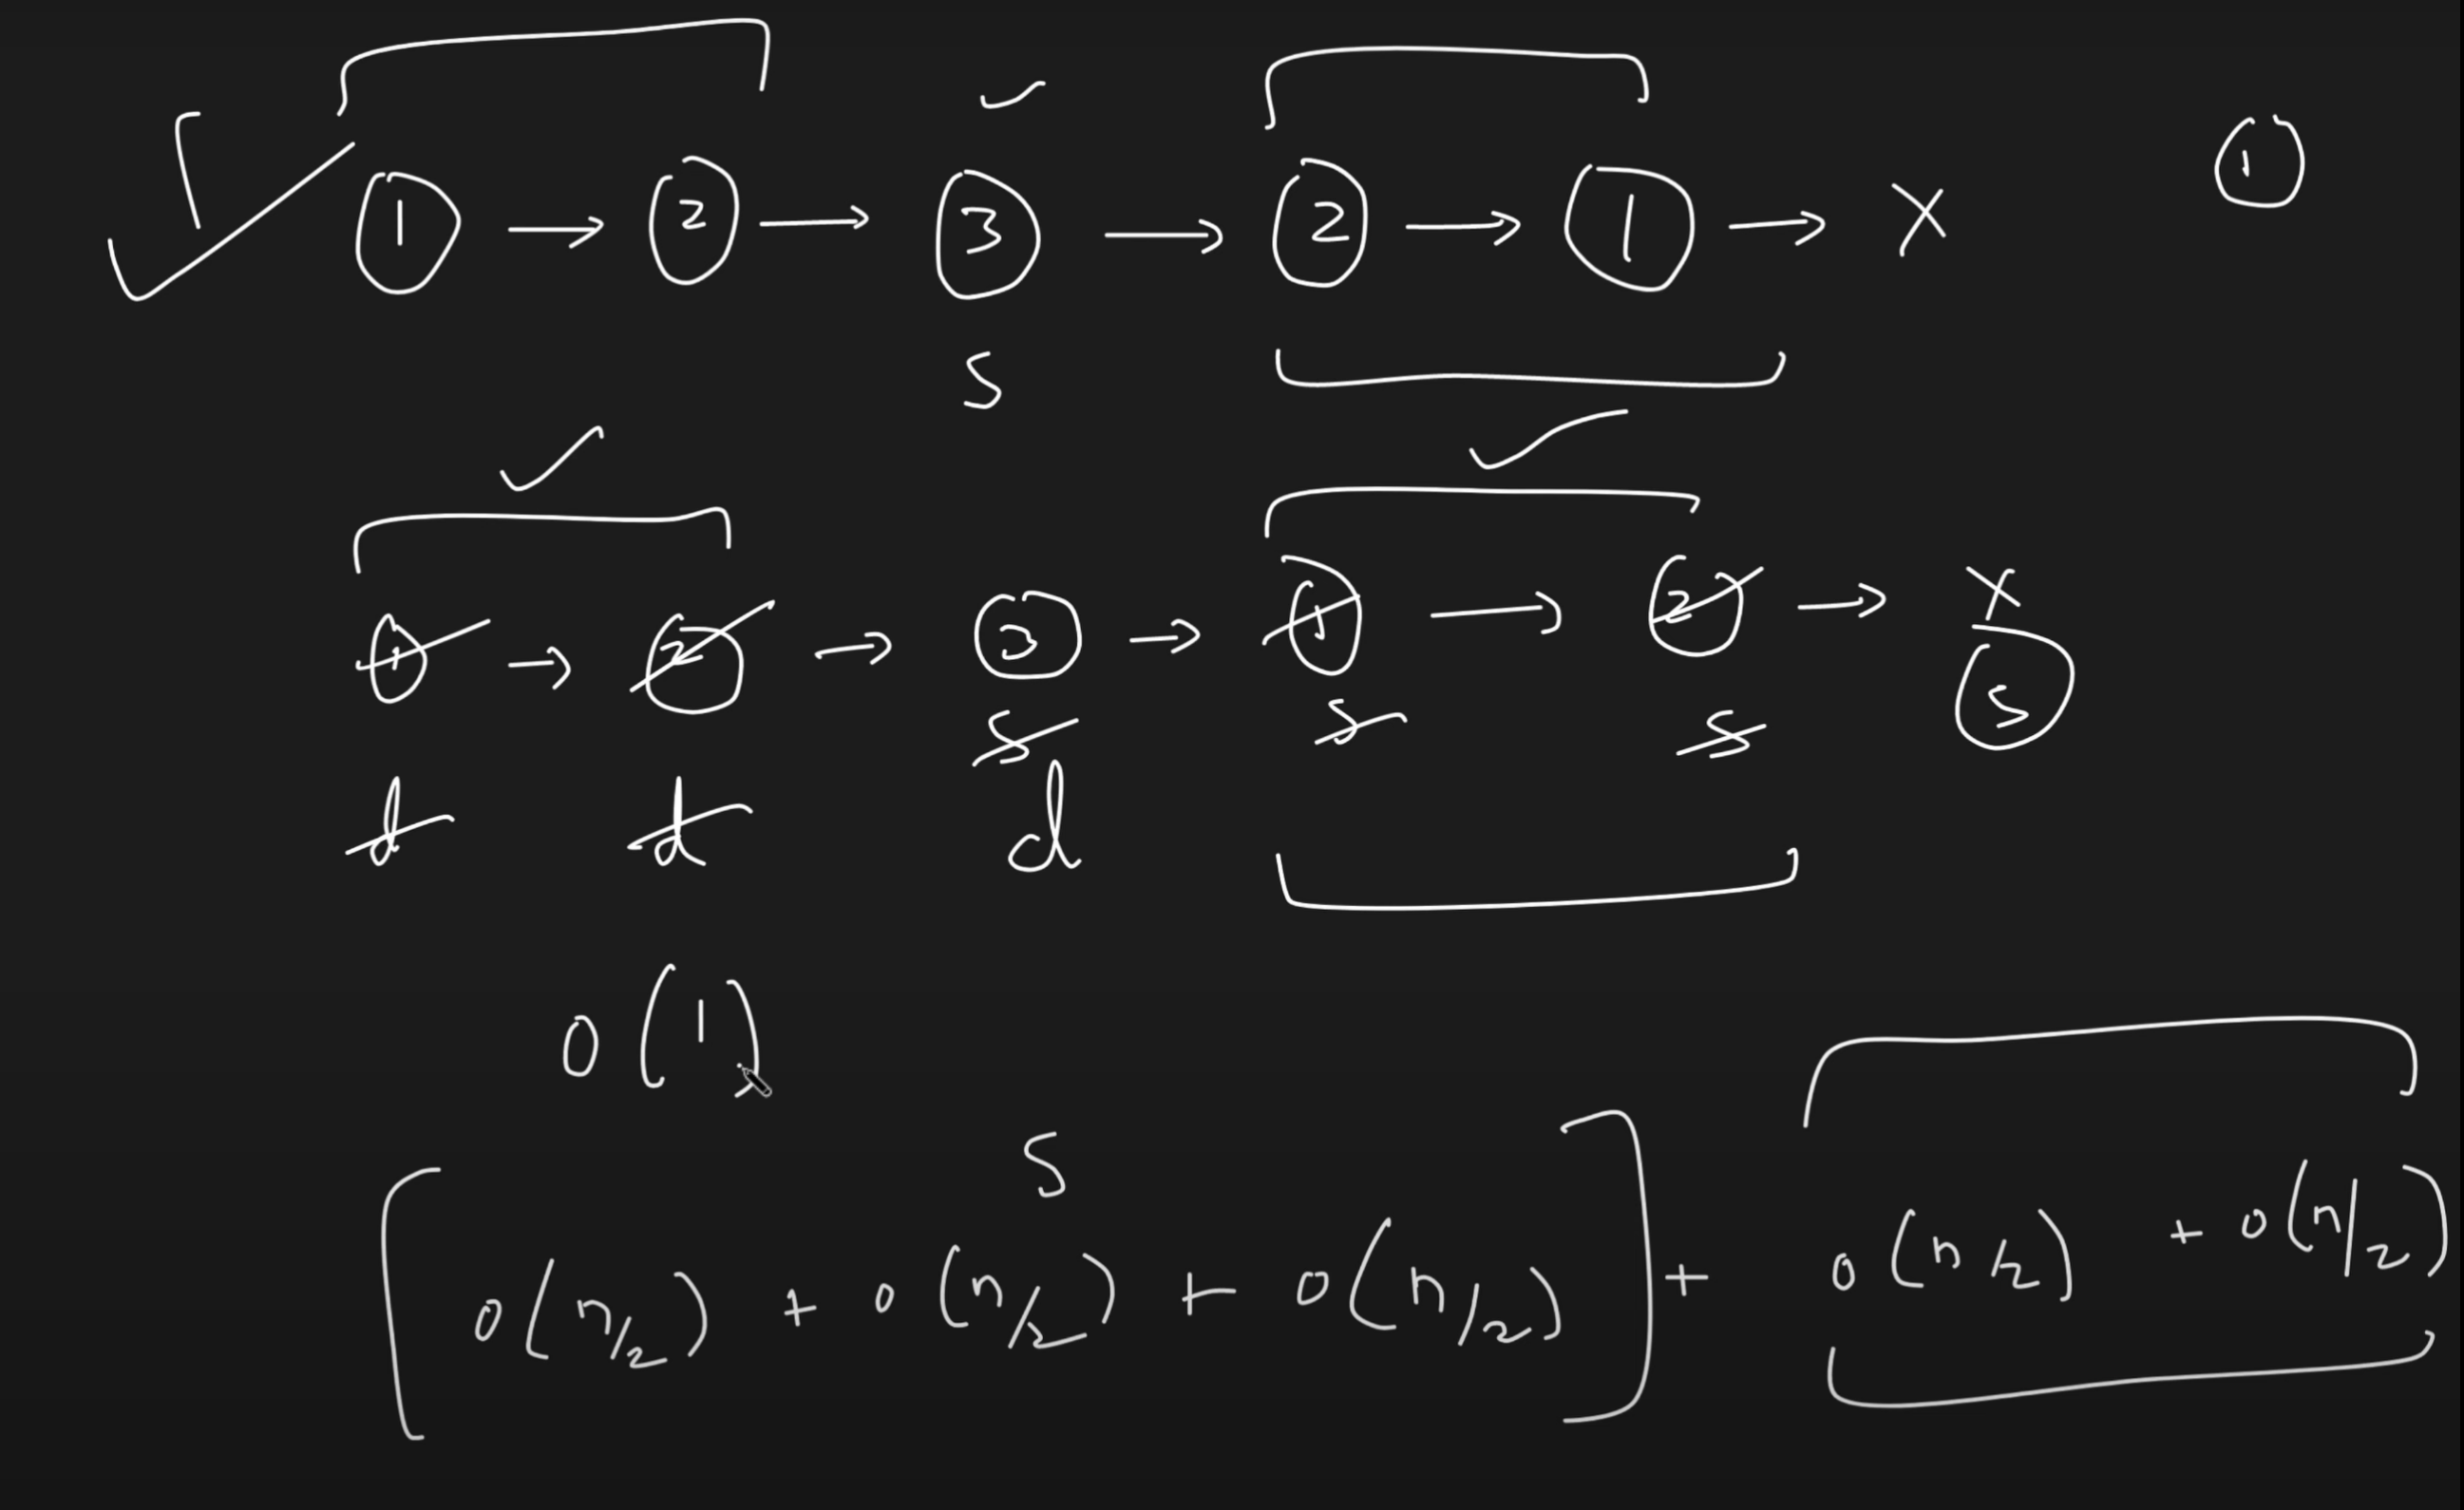 1 → 2 → 3 → 2 → 1 → X
1
S
1 → 2 → 3 → 1 → 2 → X
S S S S
d d d
O(1)
S
[O(n/2) + O(n/2) + O(n/2)] + O(n/2) + O(n/2)